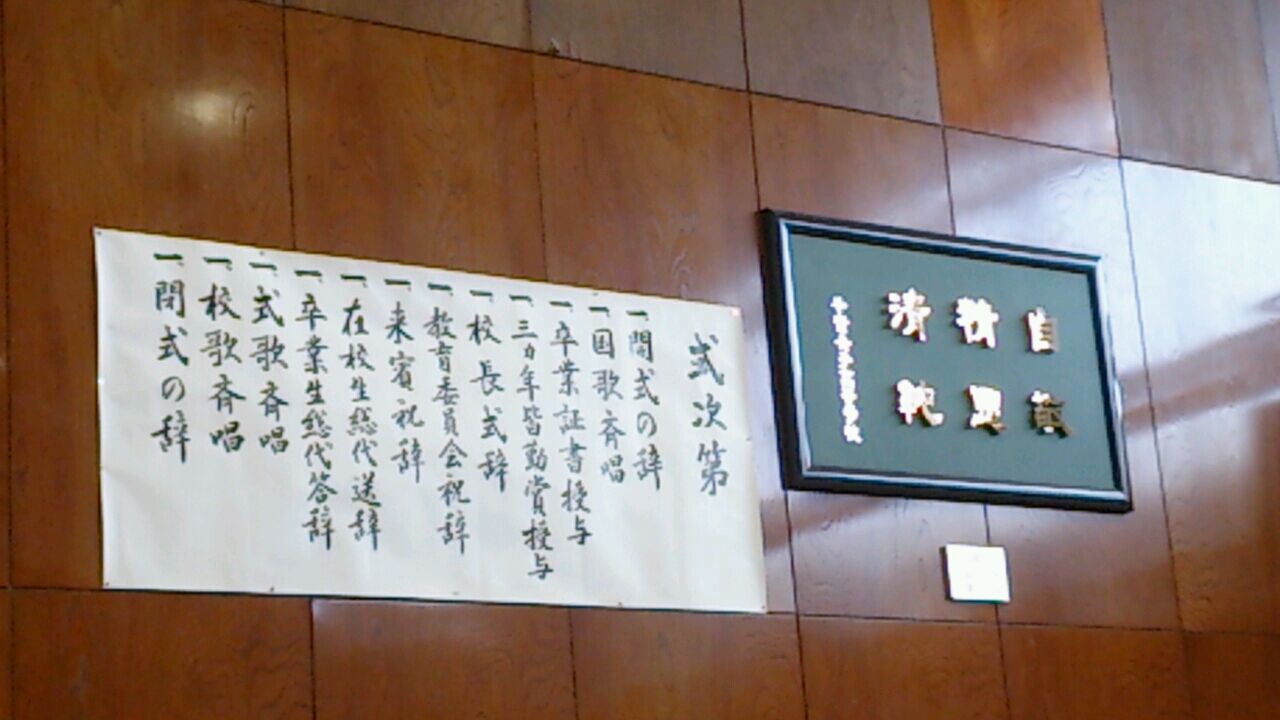 式次第
一、開式の辞
一、国歌斉唱
一、卒業証書授与
一、三カ年皆勤賞授与
一、校長式辞
一、教育委員会祝辞
一、来賓祝辞
一、在校生総代送辞
一、卒業生総代答辞
一、式歌斉唱
一、校歌斉唱
一、閉式の辞
自
積
清